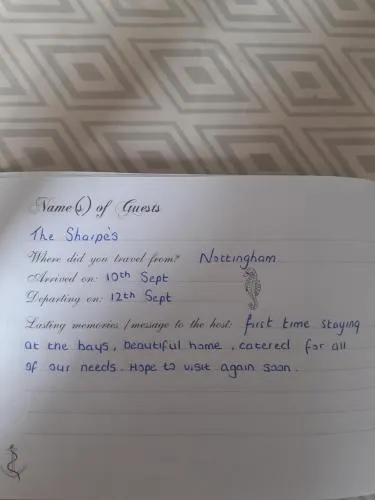 Name(s) of Guests
The Sharpe's
Where did you travel from? Nottingham
Arrived on: 10th Sept
Departing on: 12th Sept
Lasting memories / message to the host: first time staying
at the bays, beautiful home, catered for all
of our needs. Hope to visit again soon.